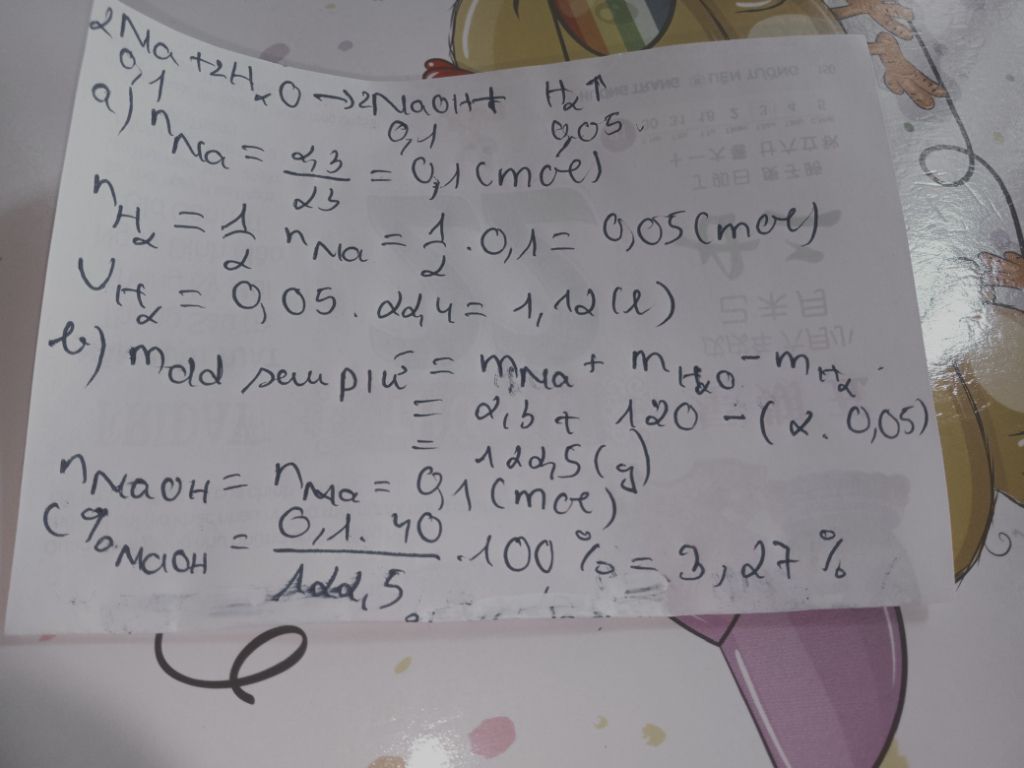 2Na + 2H₂O → 2NaOH + H₂↑
0,1 0,1 0,05
a) nNa = 2,3/23 = 0,1 (mol)
nH₂ = 1/2 nNa = 1/2 . 0,1 = 0,05 (mol)
VH₂ = 0,05 . 22,4 = 1,12 (l)
b) mdd sau pứ = mNa + mH₂O - mH₂
= 2,3 + 120 - (2 . 0,05)
= 122,5 (g)
nNaOH = nNa = 0,1 (mol)
C%NaOH = 0,1 . 40/122,5 . 100% = 3,27%